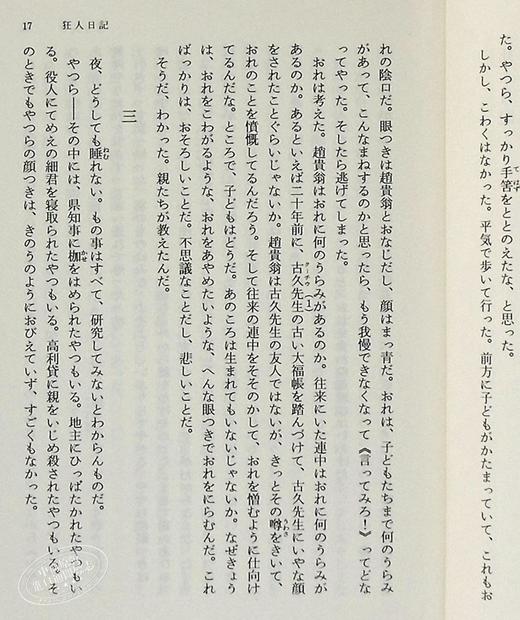 た。やつら、すっかり手筈をととのえたな、と思った。
しかし、こわくはなかった。平気で歩いて行った。前方に子どもがかたまっていて、これもお
17　狂人日記
れの陰口だ。眼つきは趙貴翁とおなじだし、顔はまっ青だ。おれは、子どもたちまで何のうらみ
があって、こんなまねするのかと思ったら、もう我慢できなくなって《言ってみろ！》ってどな
ってやった。そしたら逃げてしまった。
おれは考えた。趙貴翁はおれに何のうらみがあるのか。往来にいた連中はおれに何のうらみが
あるのか。あるといえば二十年前に、古久先生の古い大福帳を踏んづけて、古久先生にいやな顔
をされたことぐらいじゃないか。趙貴翁は古久先生の友人ではないが、きっとその噂をきいて、
おれのことを憤慨してるんだろう。そして往来の連中をそそのかして、おれを憎むように仕向け
てるんだな。ところで、子どもはどうだ。あのころは生まれてもいないじゃないか。なぜきょう
は、おれをこわがるような、おれをあやめたいような、へんな眼つきでおれをにらむんだ。これ
ばっかりは、おそろしいことだ。不思議なことだし、悲しいことだ。
そうだ、わかった。親たちが教えたんだ。
三
夜、どうしても睡れない。もの事はすべて、研究してみないとわからんものだ。
やつら――その中には、県知事に枷をはめられたやつもいる。地主にひっぱたかれたやつもい
る。役人にてめえの細君を寝取られたやつもいる。高利貸に親をいじめ殺されたやつもいる。そ
のときでもやつらの顔つきは、きのうのようにおびえていず、すごくもなかった。